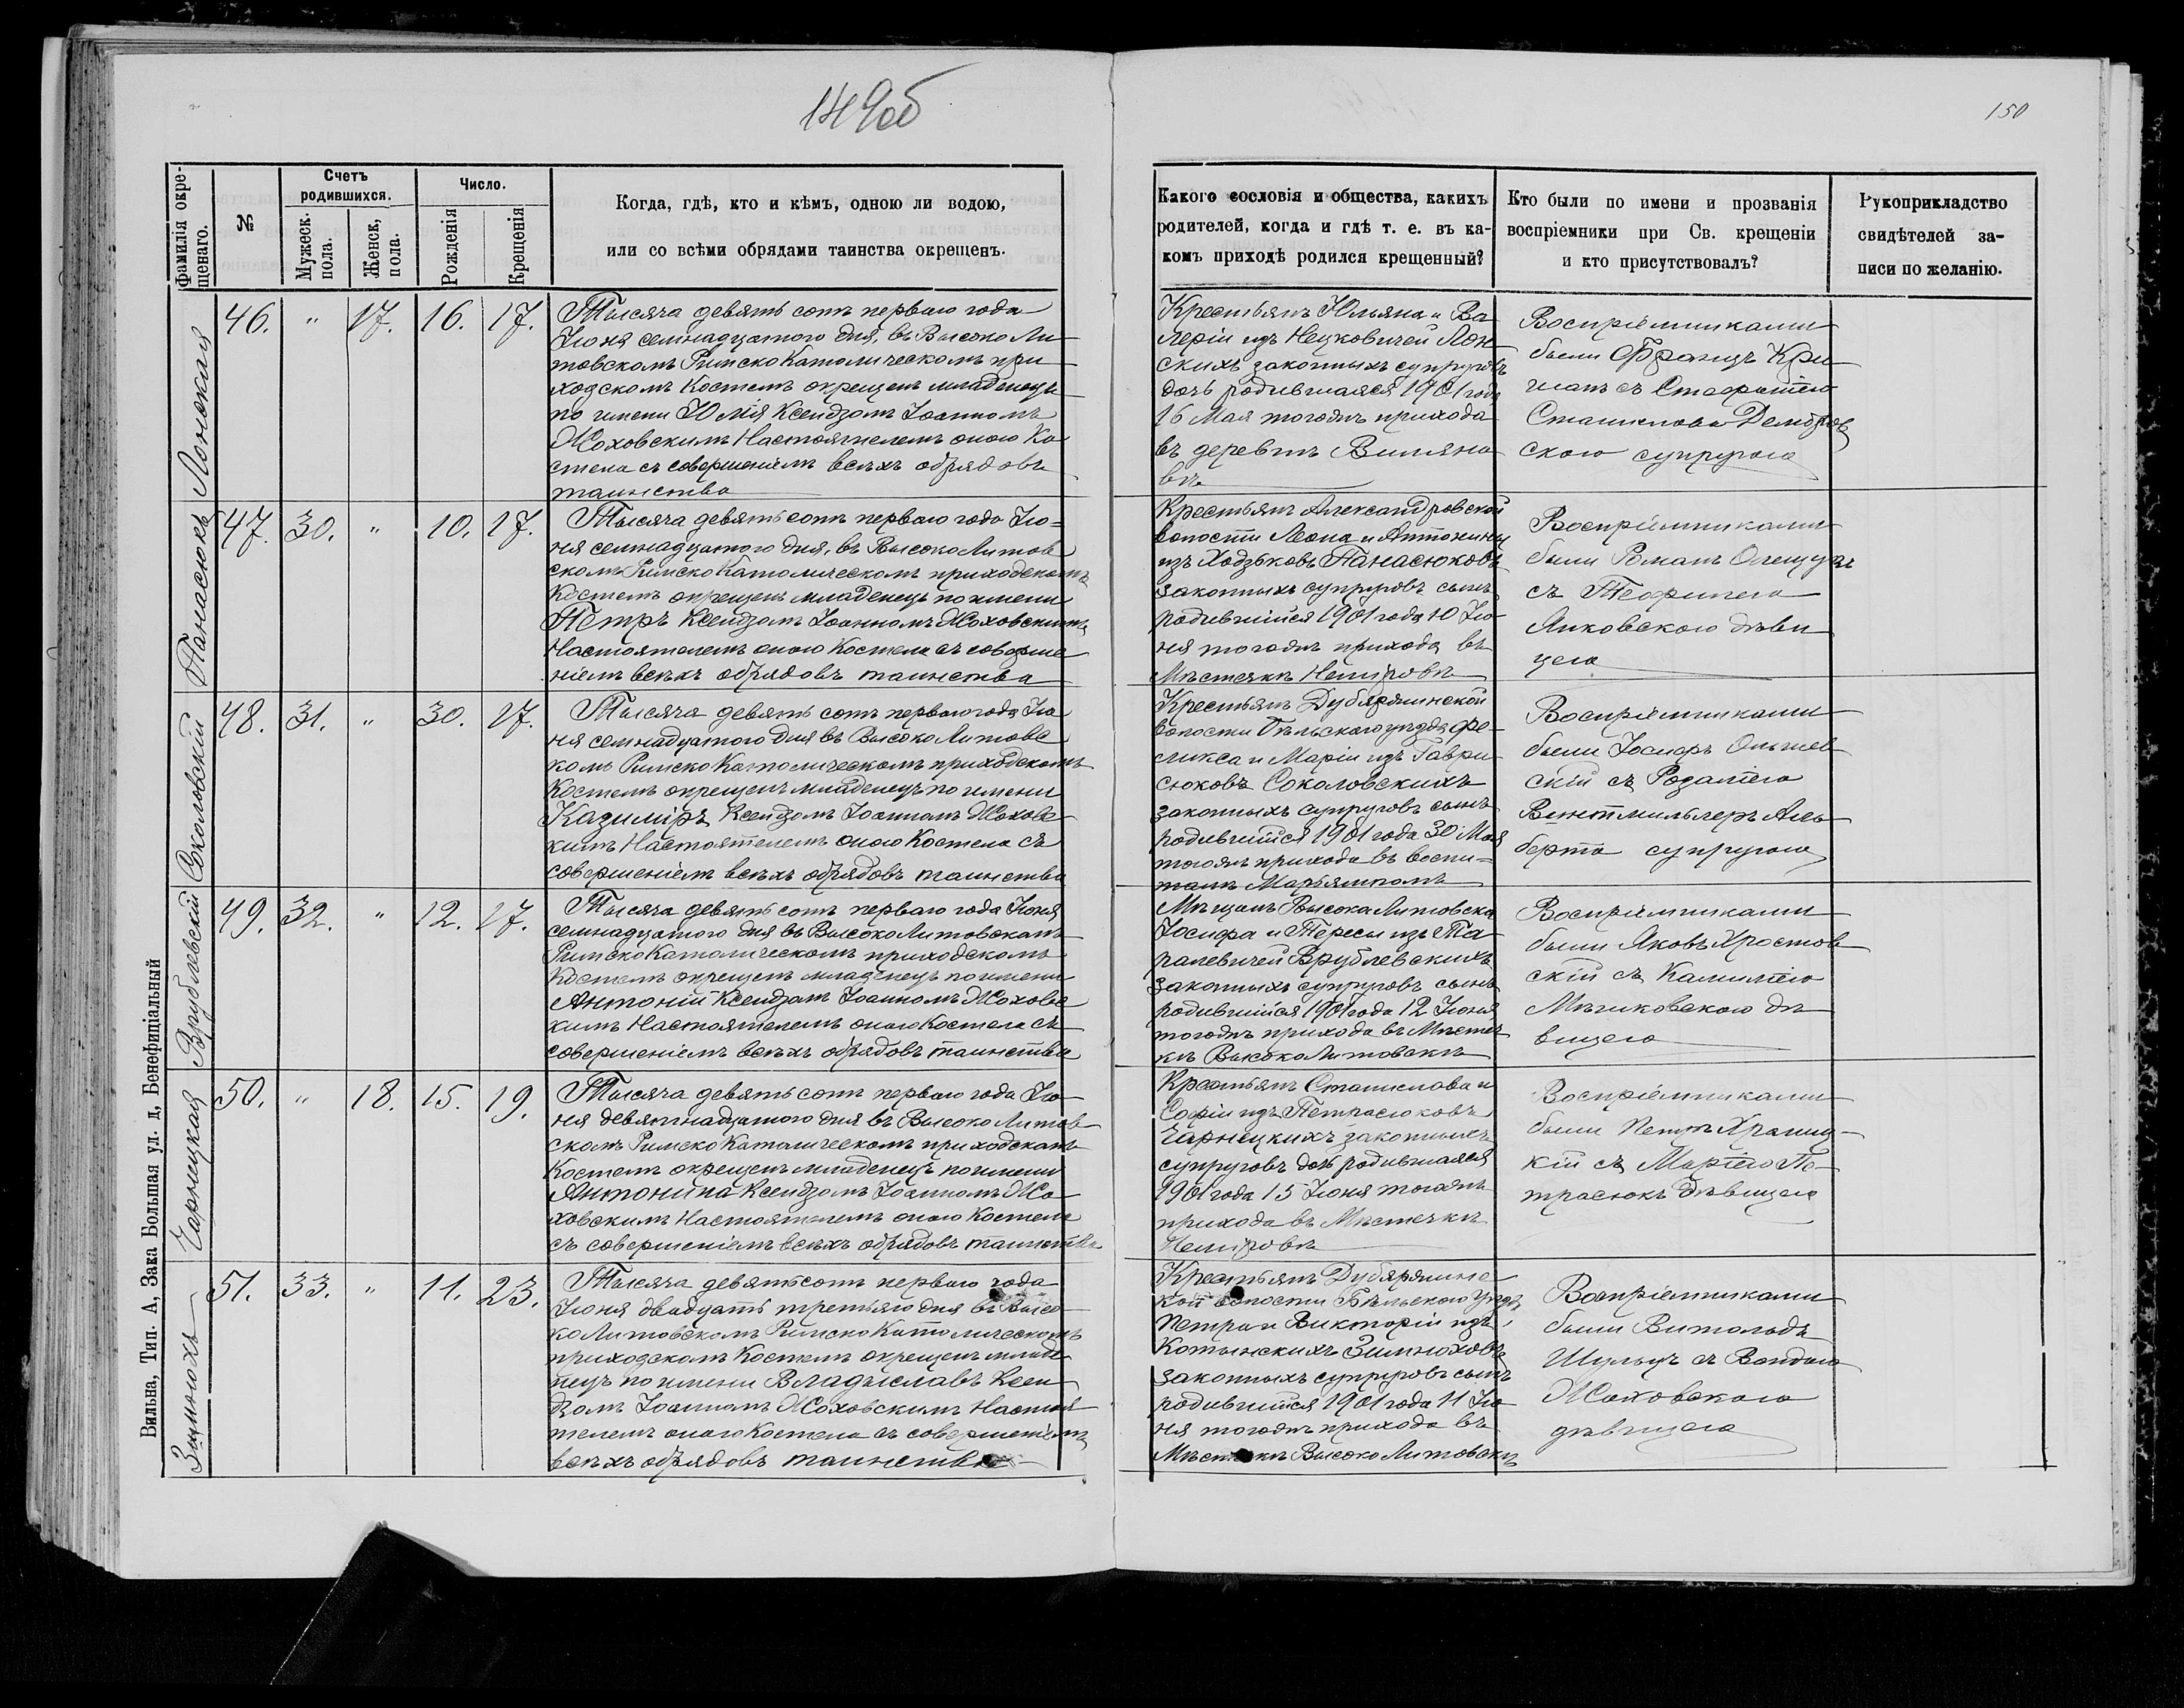 149об
150
фамилія окре-
щенаго.
№
Счетъ
родившихся.
Мужеск.
пола.
Женск,
пола.
Число.
Рожденія
Крещенія
Когда, гдѣ, кто и кѣмъ, одною ли водою,
или со всѣми обрядами таинства окрещенъ.
Какого сословія и общества, какихъ
родителей, когда и гдѣ т. е. въ ка-
комъ приходѣ родился крещенный?
Кто были по имени и прозванія
воспріемники при Св. крещеніи
и кто присутствовалъ?
Рукоприкладство
свидѣтелей за-
писи по желанію.
Лонская
46. " 17. 16. 17.
Тысяча девять сотъ перваго года
Іюня семнадцатого дня, въ Высоко Ли
товскомъ Римско Католическомъ при
ходскомъ Костелѣ окрещенъ младенецъ
по имени Юлія Ксендзомъ Іоанномъ
Жоховскимъ Настоятелемъ оного Ко
стела съ совершеніемъ всѣхъ обрядовъ
таинства
Крестьянъ Юльяна и Ва
леріи изъ Нецковичей Лон
скихъ законныхъ супруговъ
дочь родившаяся 1901 года
16 Мая тогожъ прихода
въ деревнѣ Виляно
вѣ
Воспріемниками
были Францъ
съ Стефаніею
Станислова Дембров
скою супругою
Панасюкъ
47. 30. " 10. 17.
Тысяча девять сотъ перваго года Ію=
ня семнадцатого дня, въ Высоко Литов
скомъ Римско Католическомъ приходскомъ
Костелѣ окрещенъ младенецъ по имени
Петръ Ксендзомъ Іоанномъ Жоховскимъ
Настоятелемъ оного Костела съ соверше
ніемъ всѣхъ обрядовъ таинства
Крестьянъ Александровской
волости Леона и Антонины
изъ Ходзьковъ Панасюковъ
законныхъ супруговъ сынъ
родившійся 1901 года 10 Ію
ня тогожъ прихода въ
Мѣстечкѣ Немировѣ
Воспріемниками
были Романъ
съ Теофилею
Янковскою дѣви
цею
Соколовскій
48. 31. " 30. 17.
Тысяча девять сотъ перваго года Ію
ня семнадцатого дня въ Высоко Литовс
комъ Римско Католическомъ приходскомъ
Костелѣ окрещенъ младенецъ по имени
Казиміръ Ксендзомъ Іоанномъ Жоховс
кимъ Настоятелемъ оного Костела съ
совершеніемъ всѣхъ обрядовъ таинства
Крестьянъ Дубяжинской
волости Бѣльскаго уѣзда Фе-
ликса и Маріи изъ Гаври
сюковъ Соколовскихъ
законныхъ супруговъ сынъ
родившійся 1901 года 30 Мая
тогожъ прихода въ
Марьямполѣ
Воспріемниками
были Іосифъ Ольшев
скій съ Розаліею
Вентмильлеръ Аль
берта супругою
Врублевскій
49. 32. " 12. 17.
Тысяча девять сотъ перваго года Іюня
семнадцатого дня въ Высоко Литовскомъ
Римско Католическомъ приходскомъ
Костелѣ окрещенъ младенецъ по имени
Антоній Ксендзомъ Іоанномъ Жоховс
кимъ Настоятелемъ оного Костела съ
совершеніемъ всѣхъ обрядовъ таинства
Мѣщанъ Высока Литовска
Іосифа и Тересы изъ Та
Врублевскихъ
законныхъ супруговъ сынъ
родившійся 1901 года 12 Іюня
тогожъ прихода въ Мѣстеч
кѣ Высоко Литовскѣ
Воспріемниками
были Яковъ Хростов
скій съ Камиліею
дѣ
вицею
Чарнецкая
50. " 18. 15. 19.
Тысяча девять сотъ перваго года Ію
ня девятнадцатого дня въ Высоко Литов
скомъ Римско Католическомъ приходскомъ
Костелѣ окрещенъ младенецъ по имени
Антонина Ксендзомъ Іоанномъ Жо
ховскимъ Настоятелемъ оного Костела
съ совершеніемъ всѣхъ обрядовъ таинства
Крестьянъ Станислова и
Софіи изъ Петрасюковъ
Чарнецкихъ законныхъ
супруговъ дочь родившаяся
1901 года 15 Іюня тогожъ
прихода въ Мѣстечкѣ
Немировѣ
Воспріемниками
были Петръ
кій съ Маріею Пе
трасюкъ дѣвицею
Зимнюхъ
51. 33. " 11. 23.
Тысяча девять сотъ перваго года
Іюня двадцать третьяго дня въ Высо
ко Литовскомъ Римско Католическомъ
приходскомъ Костелѣ окрещенъ младе
нецъ по имени Владыславъ Ксен
дзомъ Іоанномъ Жоховскимъ Настоя
телемъ оного Костела съ совершеніемъ
всѣхъ обрядовъ таинства
Крестьянъ Дубяжинс
кой волости Бѣльского уѣзда
Петра и Викторіи изъ
Котынскихъ Зимнюховъ
законныхъ супруговъ сынъ
родившійся 1901 года 11 Ію
ня тогожъ прихода въ
Мѣстечкѣ Высоко Литовскѣ
Воспріемниками
были Витольдъ
Шульцъ съ Вандою
Жоховскою
дѣвицею
Вильна, Тип. А, Зака Большая ул. д, Бенефиціальный